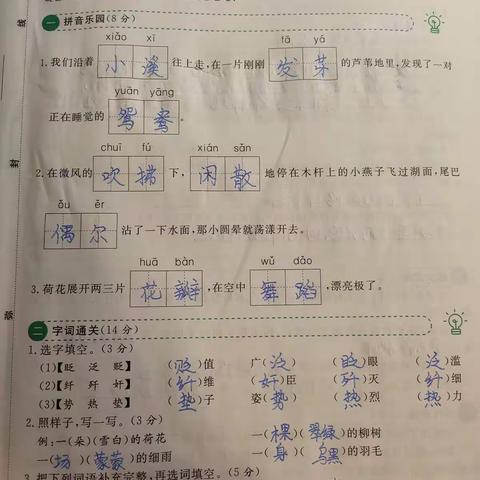 线
封
一 拼音乐园(8 分)
xiǎo xī fā yá
1.我们沿着 小溪 往上走,在一片刚刚 发芽 的芦苇地里,发现了一对
yuān yāng
正在睡觉的 鸳鸯 。
chuī fú xián sǎn
2.在微风的 吹拂 下, 闲散 地停在木杆上的小燕子飞过湖面,尾巴
ǒu ěr
偶尔 沾了一下水面,那小圆晕就荡漾开去。
huā bàn wǔ dǎo
3.荷花展开两三片 花瓣 ,在空中 舞蹈 ,漂亮极了。
二 字词通关(14 分)
1.选字填空。(3 分)
(1)【眨 泛 贬】 (贬)值 广(泛) (眨)眼 (泛)滥
(2)【纤 歼 奸】 (纤)维 (奸)臣 (歼)灭 (纤)细
(3)【势 热 垫】 (垫)子 姿(势) (热)烈 (热)力
2.照样子,写一写。(3 分)
例:一(朵)(雪白)的荷花 一(棵)(翠绿)的柳树
一(场)(蒙蒙)的细雨 一(身)(乌黑)的羽毛
3.把下列词语补充完整,再选词填空。(5 分)